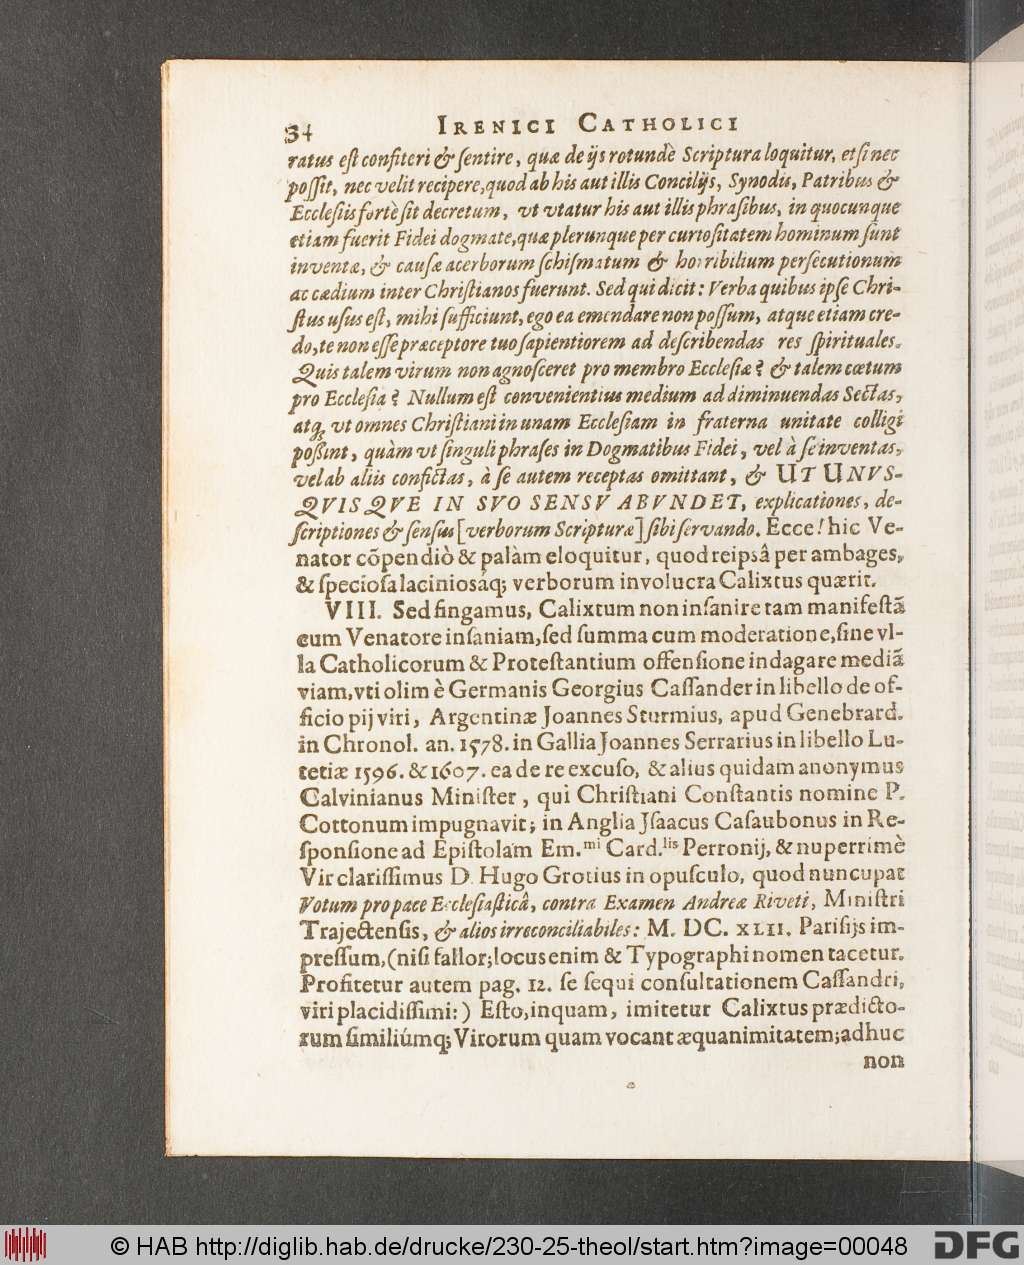 34 IRENICI CATHOLICI
ratus eſt confiteri & ſentire, quæ de ijs rotundè Scriptura loquitur, etſi nec
poſſit, nec velit recipere, quod ab his aut illis Concilijs, Synodis, Patribus &
Eccleſiis fortè ſit decretum, vt vtatur his aut illis phraſibus, in quocunque
etiam fuerit Fidei dogmate, quæ plerunque per curioſitatem hominum ſunt
inventæ, & cauſæ acerborum ſchiſmatum & horribilium perſecutionum
ac cædium inter Chriſtianos fuerunt. Sed qui dicit: Verba quibus ipſe Chri-
ſtus uſus eſt, mihi ſufficiunt, ego ea emendare non poſſum, atque etiam cre-
do, te non eſſe præceptore tuo ſapientiorem ad deſcribendas res ſpirituales.
Quis talem virum non agnoſceret pro membro Eccleſiæ? & talem cœtum
pro Eccleſia? Nullum eſt convenientius medium ad diminuendas Sectas,
atq; vt omnes Chriſtiani in unam Eccleſiam in fraterna unitate colligi
poßint, quàm vt ſinguli phraſes in Dogmatibus Fidei, vel à ſe inventas,
vel ab aliis confictas, à ſe autem receptas omittant, & UT UNVS-
QVISQVE IN SVO SENSV ABVNDET, explicationes, de-
ſcriptiones & ſenſus [verborum Scripturæ] ſibi ſervando. Ecce! hic Ve-
nator cõpendiò & palàm eloquitur, quod reipsâ per ambages,
& ſpecioſa lacinioſáq; verborum involucra Calixtus quærit.
VIII. Sed fingamus, Calixtum non inſanire tam manifeſtã
cum Venatore inſaniam, ſed ſumma cum moderatione, ſine vl-
la Catholicorum & Proteſtantium offenſione indagare mediã
viam, vti olim è Germanis Georgius Caſſander in libello de of-
ficio pij viri, Argentinæ Joannes Sturmius, apud Genebrard.
in Chronol. an. 1578. in Gallia Joannes Serrarius in libello Lu-
tetiæ 1596. & 1607. ea de re excuſo, & alius quidam anonymus
Calvinianus Miniſter, qui Chriſtiani Conſtantis nomine P.
Cottonum impugnavit; in Anglia Jſaacus Caſaubonus in Re-
ſponſione ad Epiſtolam Em.mi Card.lis Perronij, & nuperrimè
Vir clariſſimus D. Hugo Grotius in opuſculo, quod nuncupat
Votum pro pace Eccleſiaſticâ, contra Examen Andreæ Riveti, Miniſtri
Trajectenſis, & alios irreconciliabiles: M. DC. XLII. Pariſijs im-
preſſum, (niſi fallor; locus enim & Typographi nomen tacetur.
Profitetur autem pag. 12. ſe ſequi conſultationem Caſſandri,
viri placidiſſimi:) Eſto, inquam, imitetur Calixtus prædicto-
rum ſimiliúmq; Virorum quam vocant æquanimitatem; adhuc
non
© HAB http://diglib.hab.de/drucke/230-25-theol/start.htm?image=00048 DFG